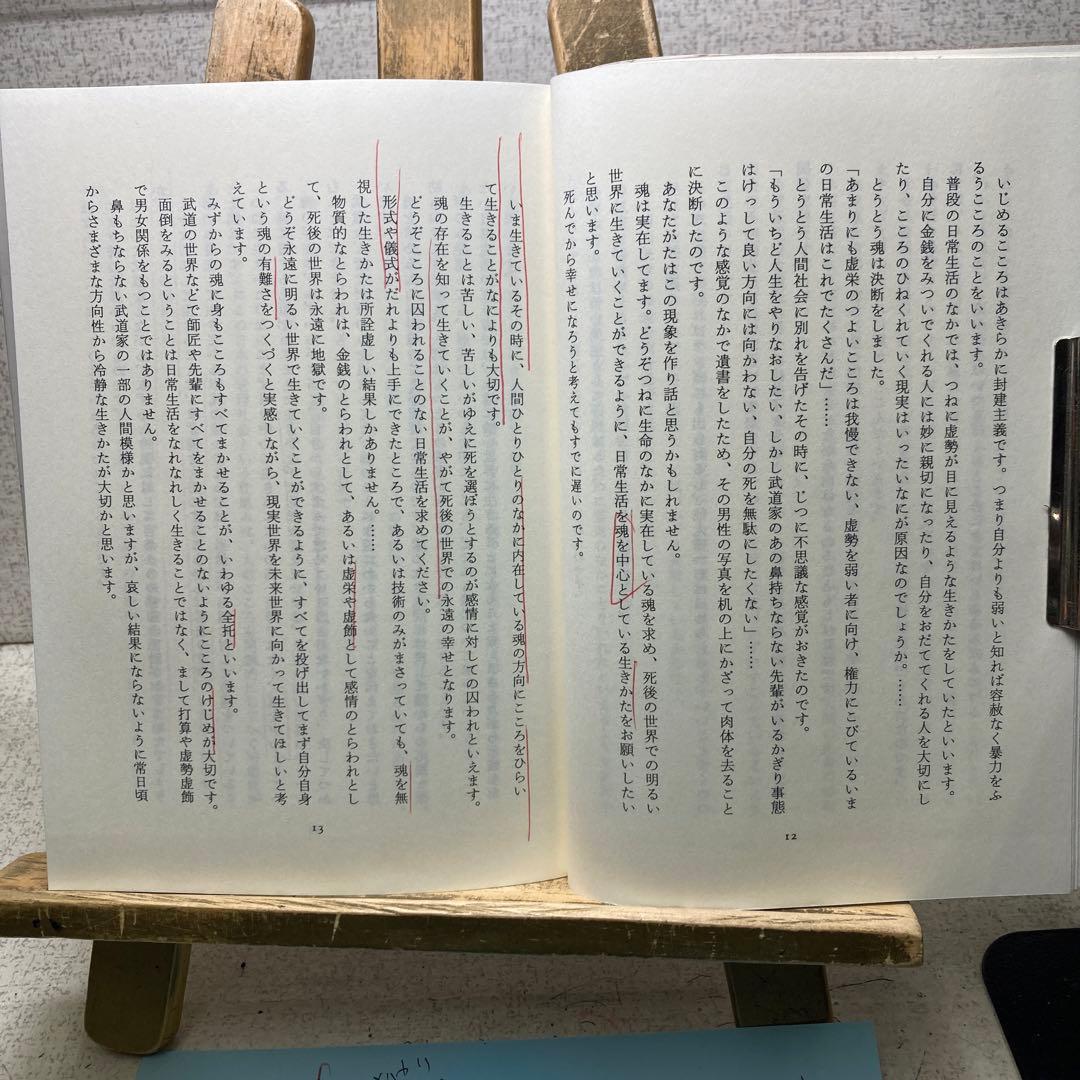 いじめるこころはあきらかに封建主義です。つまり自分よりも弱いと知れば容赦なく暴力をふ
るうこころのことをいいます。
普段の日常生活のなかでは、つねに虚勢が目に見えるような生きかたをしていたといいます。
自分に金銭をみついでくれる人には妙に親切になったり、自分をおだててくれる人を大切にし
たり、こころのひねくれていく現実はいったいなにが原因なのでしょうか。……
とうとう魂は決断をしました。
「あまりにも虚栄のつよいこころは我慢できない、虚勢を弱い者に向け、権力にこびているいま
の日常生活はこれでたくさんだ」……
とうとう人間社会に別れを告げたその時に、じつに不思議な感覚がおきたのです。
「もういちど人生をやりなおしたい、しかし武道家のあの鼻持ちならない先輩がいるかぎり事態
はけっして良い方向には向かわない、自分の死を無駄にしたくない」……
このような感覚のなかで遺書をしたため、その男性の写真を机の上にかざって肉体を去ること
に決断したのです。
あなたがたはこの現象を作り話と思うかもしれません。
魂は実在してます。どうぞつねに生命のなかに実在している魂を求め、死後の世界での明るい
世界に生きていくことができるように、日常生活を魂を中心としている生きかたをお願いしたい
と思います。
死んでから幸せになろうと考えてもすでに遅いのです。
12
いま生きているその時に、人間ひとりひとりのなかに内在している魂の方向にこころをひらい
て生きることがなによりも大切です。
生きることは苦しい、苦しいがゆえに死を選ぼうとするのが感情に対しての囚われといえます。
魂の存在を知って生きていくことが、やがて死後の世界での永遠の幸せとなります。
どうぞこころに囚われることのない日常生活を求めてください。
形式や儀式がだれよりも上手にできたところで、あるいは技術のみがまさっていても、魂を無
視した生きかたは所詮虚しい結果しかありません。……
物質的なとらわれは、金銭のとらわれとして、あるいは虚栄や虚飾として感情のとらわれとし
て、死後の世界は永遠に地獄です。
どうぞ永遠に明るい世界で生きていくことができるように、すべてを投げ出してまず自分自身
という魂の有難さをつくづくと実感しながら、現実世界を未来世界に向かって生きてほしいと考
えています。
みずからの魂に身もこころもすべてまかせることが、いわゆる全托といいます。
武道の世界などで師匠や先輩にすべてをまかせることのないようにこころのけじめが大切です。
面倒をみるということは日常生活をなれなれしく生きることではなく、まして打算や虚勢虚飾
で男女関係をもつことではありません。
鼻もちならない武道家の一部の人間模様かと思いますが、哀しい結果にならないように常日頃
からさまざまな方向性から冷静な生きかたが大切かと思います。
13